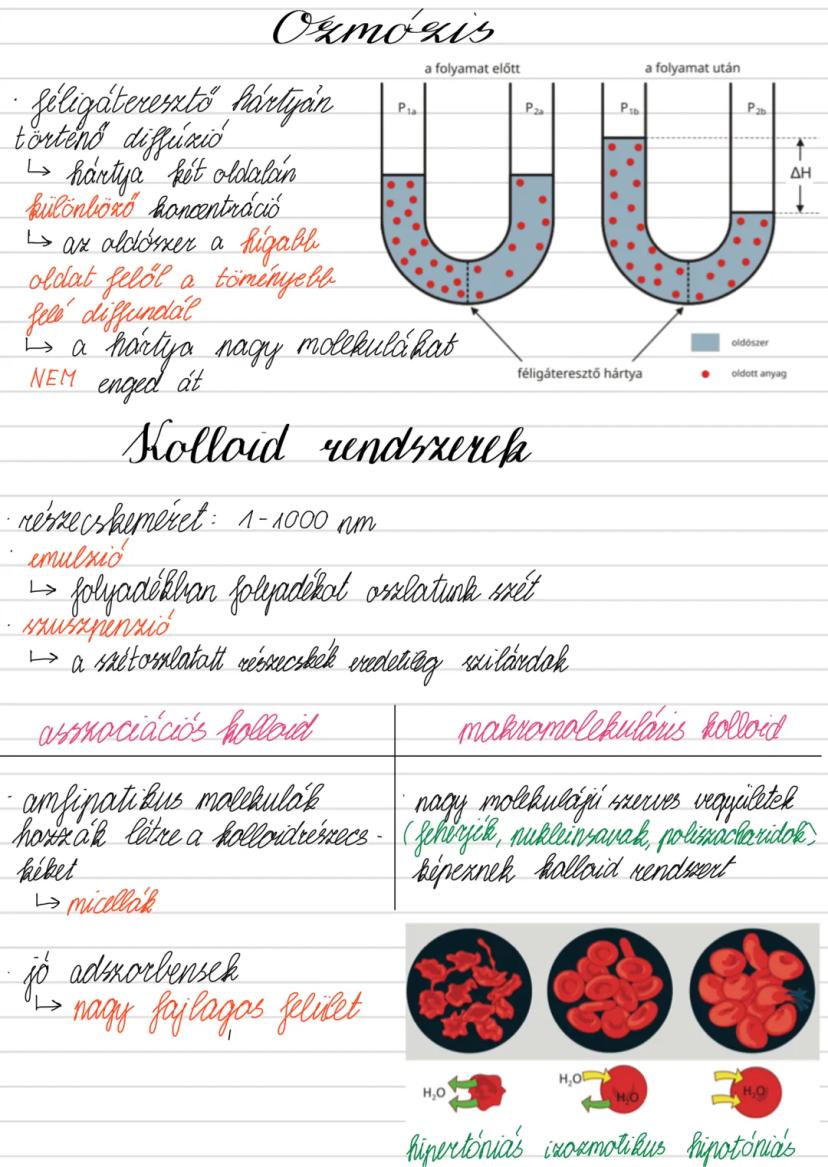 Ozmózis
· féligáteresztő hártyán
történő diffúzió
↳ hártya két oldalán
különböző koncentráció
↳ az oldószer a hígabb
oldat felől a töményebb
felé diffundál
↳ a hártya nagy molekulákat
NEM enged át
a folyamat előtt
a folyamat után
P1a
P2a
P1b
P2b
ΔH
féligáteresztő hártya
oldószer
oldott anyag
Kolloid rendszerek
· részecskeméret: 1-1000 nm
· emulzió
↳ folyadékban folyadékot oszlatunk szét
· szuszpenzió
↳ a szétoszlatott részecskék eredetileg szilárdak
asszociációs kolloid
· amfipatikus molekulák
hozzák létre a kolloidrészecs-
kéket
↳ micellák
makromolekuláris kolloid
· nagy molekulájú szerves vegyületek
(fehérjék, nukleinsavak, poliszacharidok)
képeznek kolloid rendszert
· jó adszorbensek
↳ nagy fajlagos felület
H₂O
H₂O
H₂O
H₂O
hipertóniás izozmotikus hipotóniás